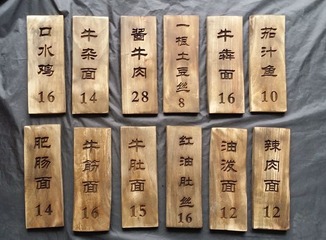 口水鸡
16
牛杂面
14
酱牛肉
28
一根土豆丝
8
牛犇面
16
茄汁鱼
10
肥肠面
14
牛筋面
16
牛肚面
15
红油肚丝
16
油泼面
12
辣肉面
12